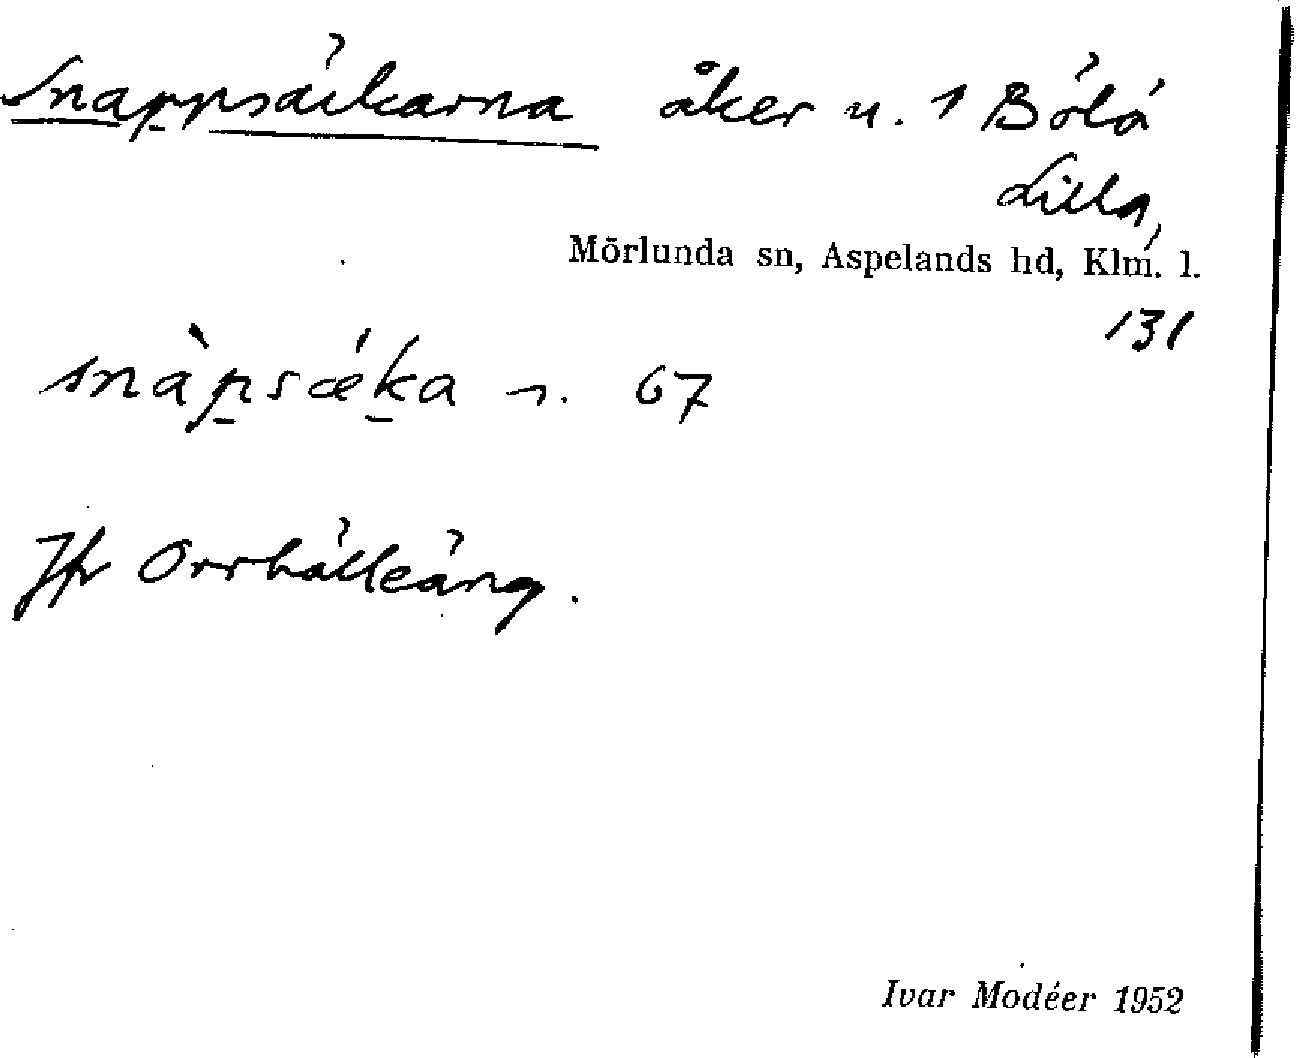 Snappsäckarna åker u. 1 Bölö
Lilla,
Mörlunda sn, Aspelands hd, Klm. l.
131
snàpsǽka n. 67
Jfr Orrhälleäng.
Ivar Modéer 1952